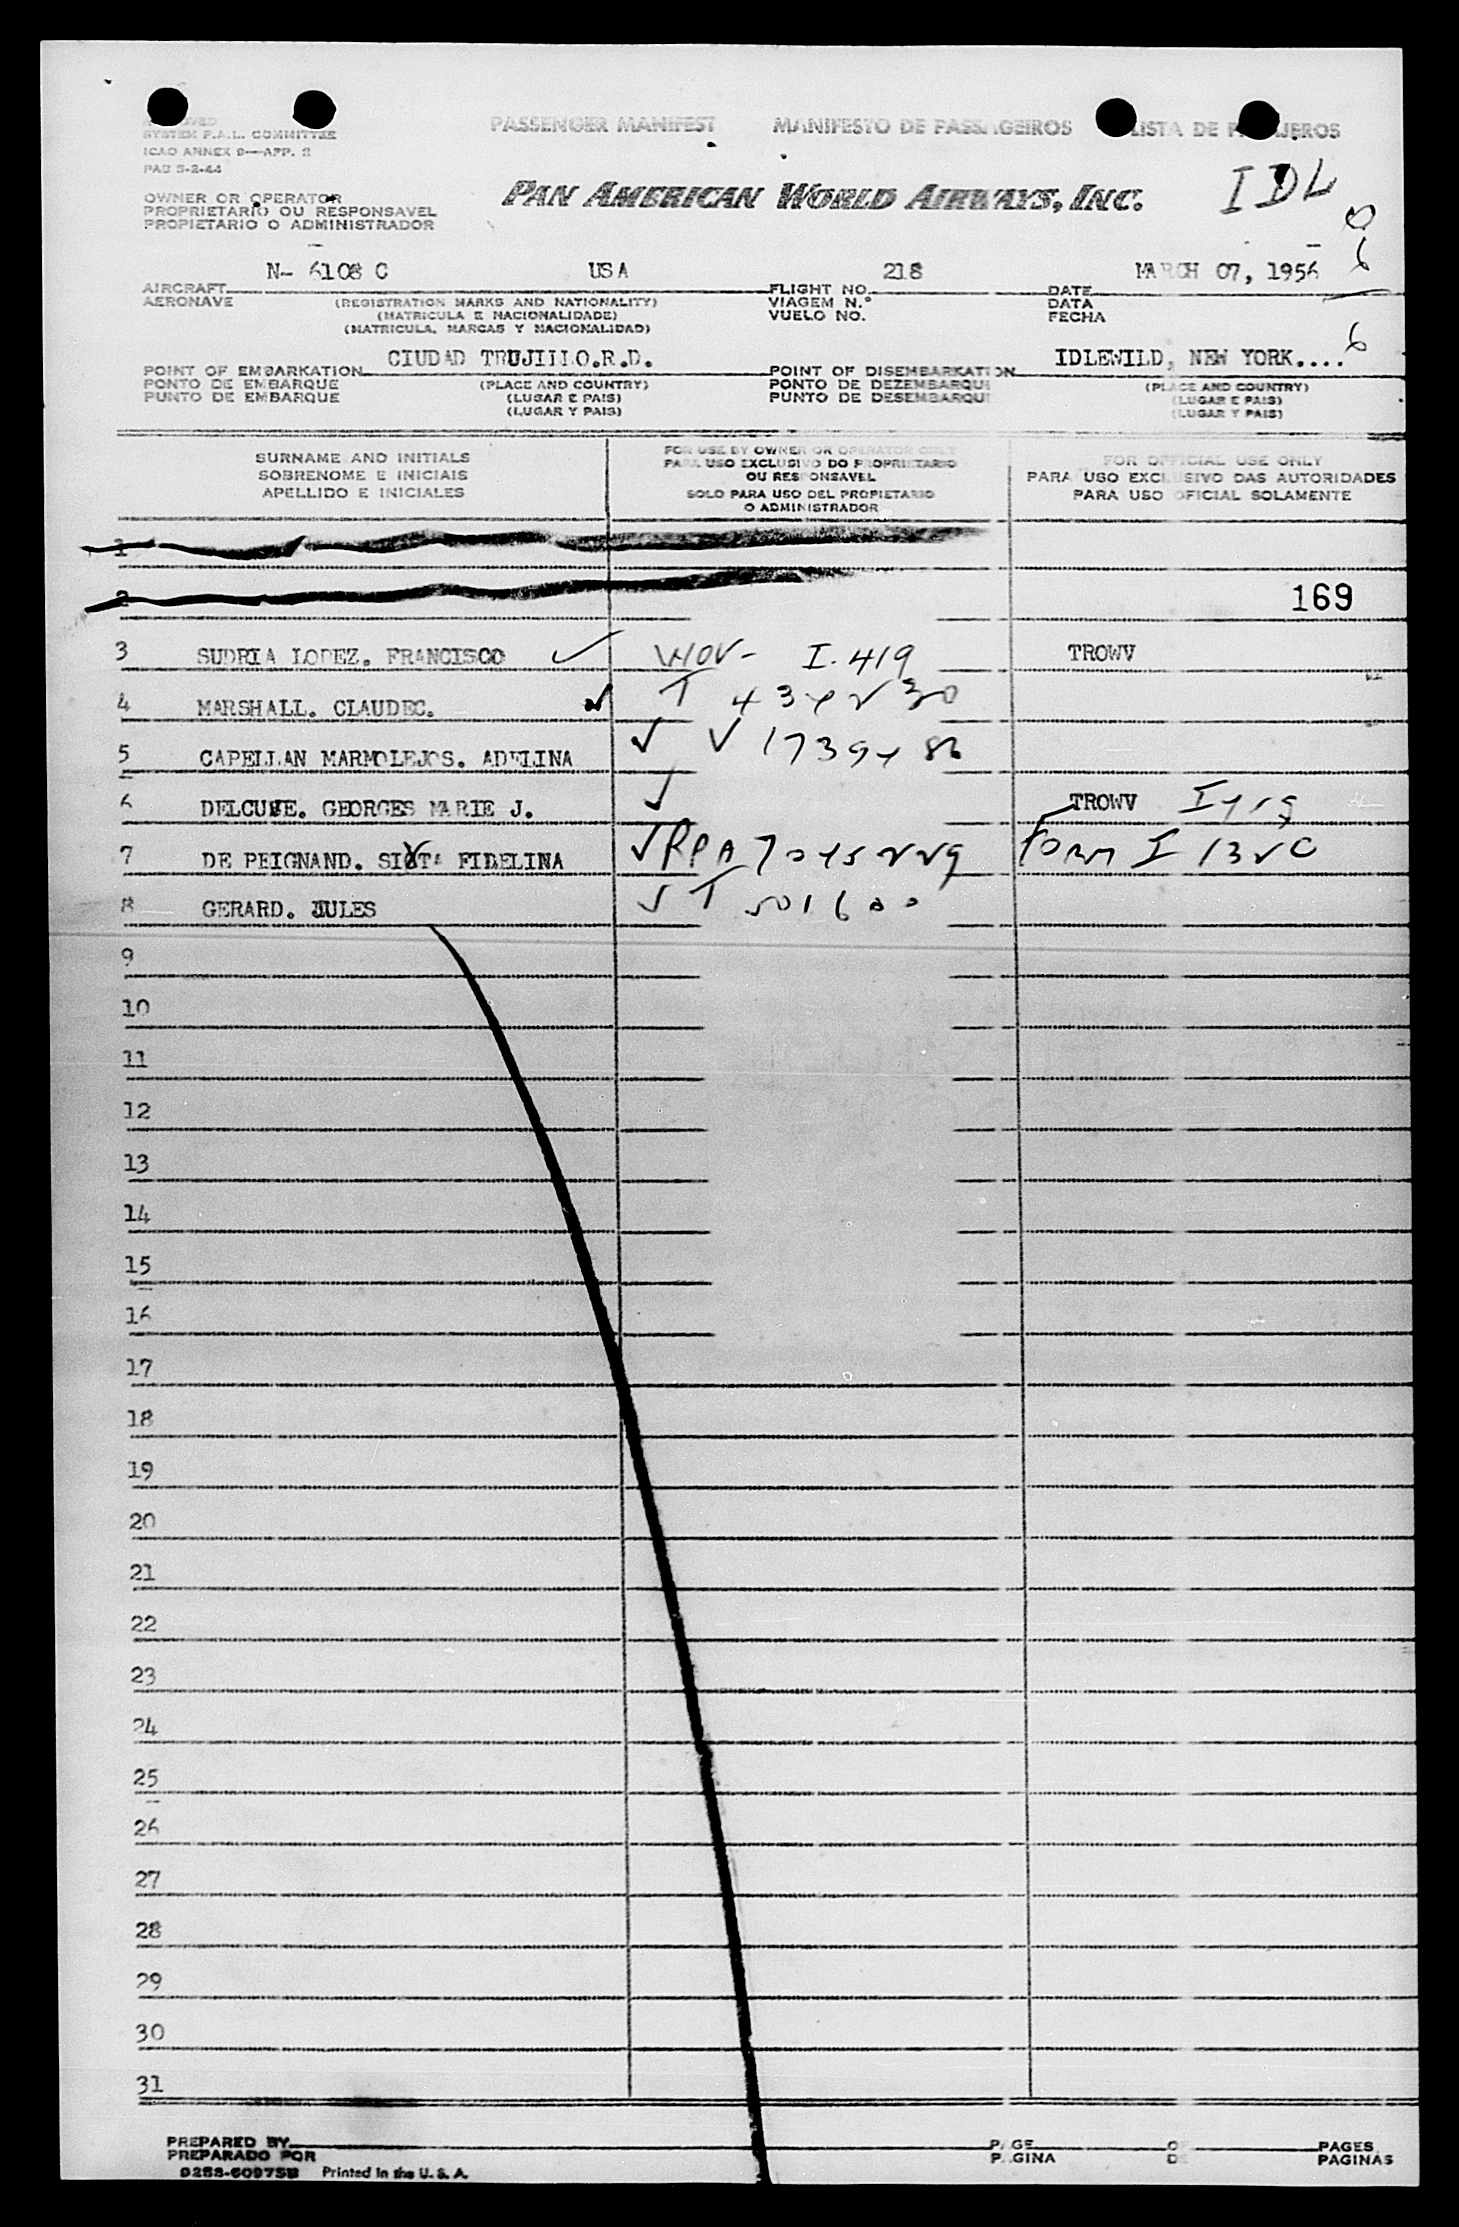 SYSTEM P.A.L. COMMITTEE
ICAO ANNEX 9—APP. 2
PAB 5-2-44
PASSENGER MANIFEST MANIFESTO DE PASSAGEIROS LISTA DE PASAJEROS
OWNER OR OPERATOR
PROPRIETARIO OU RESPONSAVEL
PROPIETARIO O ADMINISTRADOR
PAN AMERICAN WORLD AIRWAYS, INC.
IDL
0
6
6
N- 6108 C USA 218 MARCH 07, 1956
AIRCRAFT FLIGHT NO. DATE
AERONAVE (REGISTRATION MARKS AND NATIONALITY) VIAGEM N.° DATA
(MATRICULA E NACIONALIDADE) VUELO NO. FECHA
(MATRICULA, MARCAS Y NACIONALIDAD)
CIUDAD TRUJILLO.R.D. IDLEWILD, NEW YORK....
POINT OF EMBARKATION POINT OF DISEMBARKATION
PONTO DE EMBARQUE (PLACE AND COUNTRY) PONTO DE DEZEMBARQUE (PLACE AND COUNTRY)
PUNTO DE EMBARQUE (LUGAR E PAIS) PUNTO DE DESEMBARQUE (LUGAR E PAIS)
(LUGAR Y PAIS) (LUGAR Y PAIS)
SURNAME AND INITIALS FOR USE BY OWNER OR OPERATOR ONLY FOR OFFICIAL USE ONLY
SOBRENOME E INICIAIS PARA USO EXCLUSIVO DO PROPRIETARIO OU RESPONSAVEL PARA USO EXCLUSIVO DAS AUTORIDADES
APELLIDO E INICIALES SOLO PARA USO DEL PROPIETARIO O ADMINISTRADOR PARA USO OFICIAL SOLAMENTE
1
2 169
3 SUDRIA LOPEZ. FRANCISCO ✓ I.419 TROWV
4 MARSHALL. CLAUDEC. ✓ T
5 CAPELLAN MARMOLEJOS. ADELINA ✓ V
6 DELCUVE. GEORGES MARIE J. ✓ TROWV
7 DE PEIGNAND. FIDELINA ✓ FORM I
8 GERARD. JULES ✓ T 501600
9
10
11
12
13
14
15
16
17
18
19
20
21
22
23
24
25
26
27
28
29
30
31
PREPARED BY PAGE OF PAGES
PREPARADO POR PAGINA DE PAGINAS
Printed in the U. S. A.